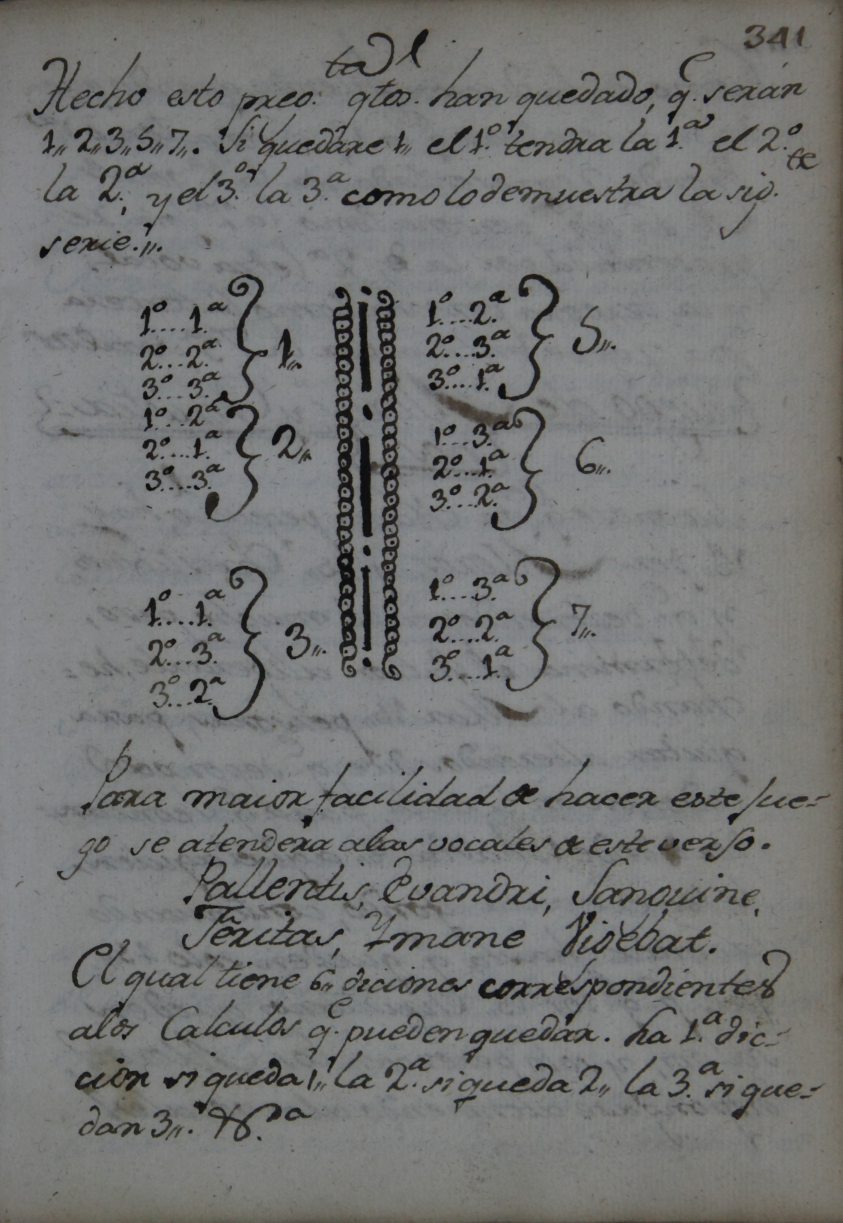 341
Hecho esto preg.ta qtos. han quedado, q.e serán
1,, 2,, 3,, 5,, 7,. Si quedare 1,, el 1.º tendra la 1.ª el 2.º
la 2.ª, y el 3.º la 3.ª como lo demuestra la sig.te
serie.,,.
1º....1.ª
2º...2.ª
3º...3.ª
1,,.
1º...2ª
2º....1.ª
3º....3.ª
2,,.
1º....1.ª
2º...3.ª
3º..2ª
3,,.
1º....2.ª
2º...3.ª
3º....1.ª
5,,.
1º...3.ª
2º....1.ª
3º..2.ª
6,,.
1º....3.ª
2º...2.ª
3º....1.ª
7,,.
Para maior facilidad de hacer este jue-
go se atendera alas vocales de este verso.
Pallentis, Evandri, Sanguine,
Feritas, Ymane Videbat.
El qual tiene 6,, diciones correspondientes
alos Calculos q.e pueden quedar. La 1.ª dic-
cion si queda 1,, la 2.ª si queda 2,, la 3.ª si que-
dan 3,,. &.ª